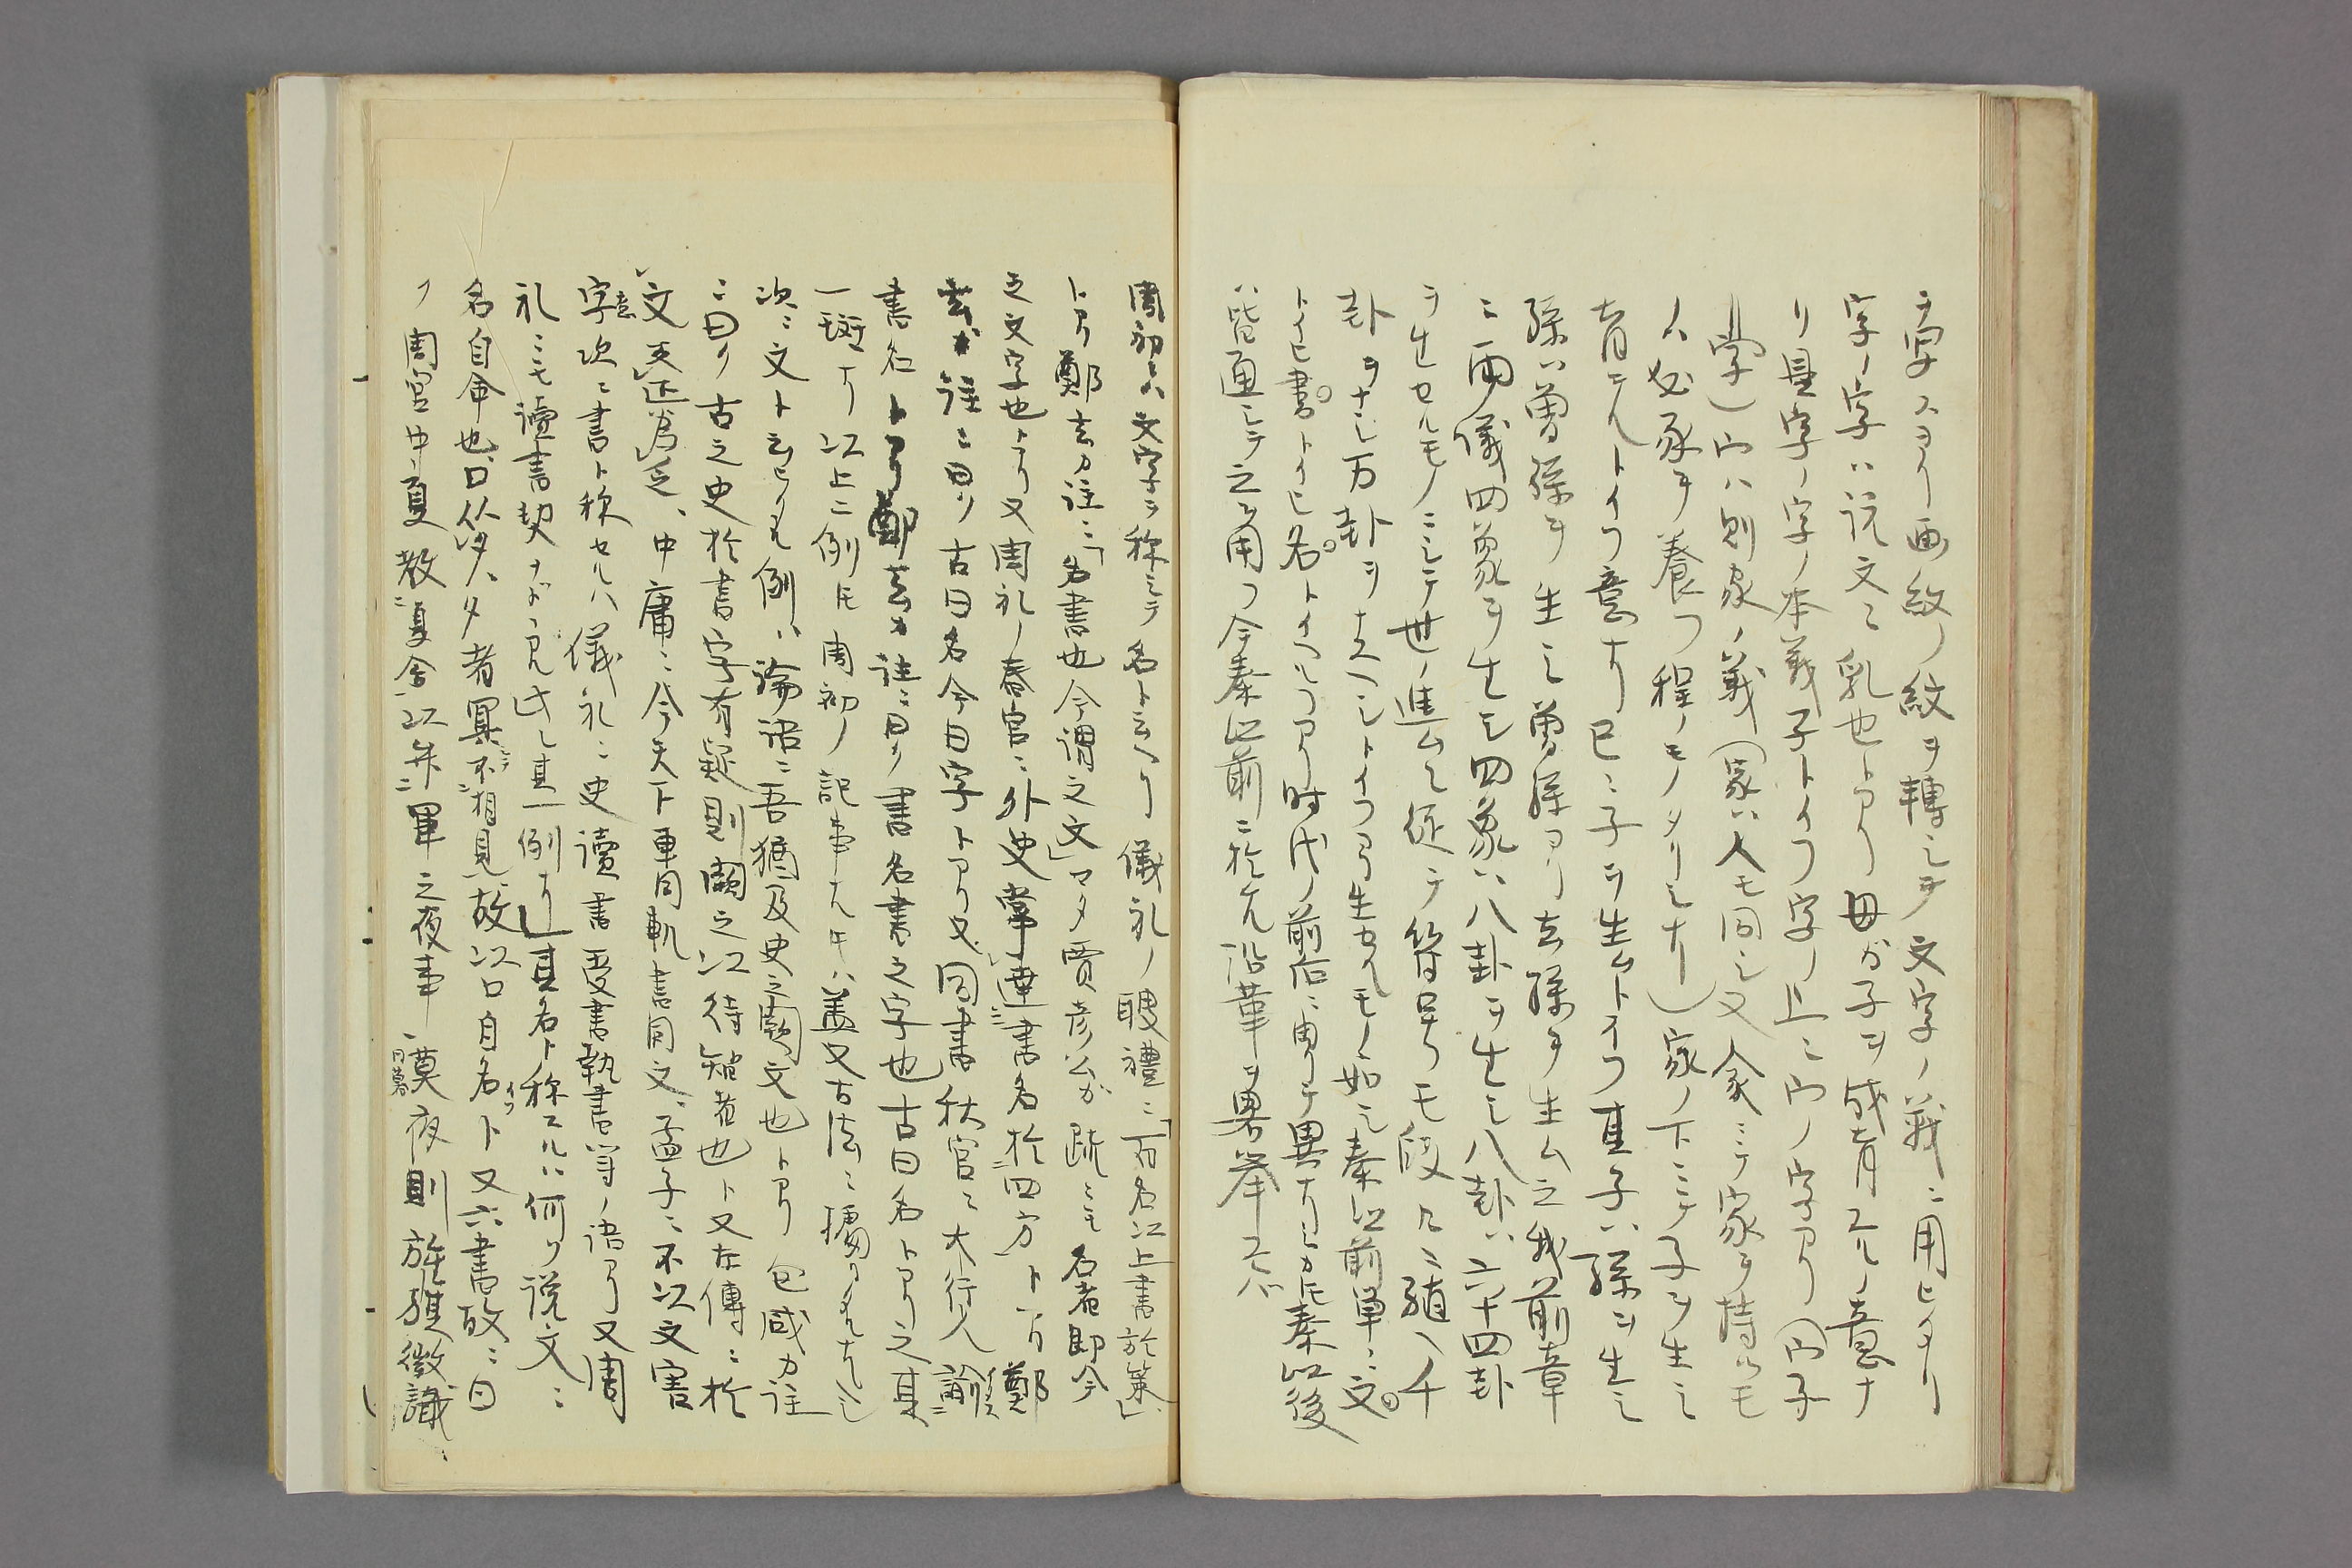 ヲ字スヨリ画紋ノ紋ヲ轉シテ文字ノ義ニ用ヒタリ
字ノ字ハ説文ニ乳也トアリ母ガ子ヲ成育スルノ意ナ
リ是字ノ字ノ本義子トイフ字ノ上ニ宀ノ字アリ(宀子
字)宀ハ則家ノ義(家ハ人モ同シ又家ニテ家ヲ持ツモ
ノハ必豕ヲ養フ程ノモノタリシナリ)家ノ下ニテ子ヲ生ミ
育ツルトイフ意ナリ已ニ子ヲ生ムトイフ其子ハ孫ヲ生ミ
孫ハ曽孫ヲ生ミ曽孫ヨリ玄孫ヲ生ム之我前章
ニ両儀四象ヲ生シ四象ハ八卦ヲ生シ八卦ハ六十四卦
ヲ生セルモノニシテ世ノ進ムニ従テ符号モ段々ニ殖ヘ千
卦ヲナシ万卦ヲナスヘシトイフヨリ生セルモノノ如シ秦以前単ニ文
トイヒ書トイヒ名トイヘルアリ時代ノ前后ニ由リテ異ナリシカ𪜈秦以後
ハ皆通シテ之ヲ用フ今秦以前ニ於ケル沿革ヲ畧挙スレバ
周初ニハ文字ヲ称シテ名ト云ヘリ儀礼ノ聘禮ニ「百名以上書於策」
トアリ鄭玄ガ注ニ「名書也今謂之文」マタ賈彦公ガ疏ニモ名者即今
之文字也トアリ又周礼ノ春官ニ外史掌達書名於四方トアリ鄭
玄ガ註ニ曰ク古曰名今曰字トアリ又同書秋官ニ大行人諭
書名トアリ鄭玄ガ註ニ曰ク書名書之字也古曰名トアリ之其
一斑ナリ以上二例𪜈周初ノ記事ナレ𪜈蓋又古法ニ據リタルナルベシ
次ニ文ト云ヒタル例ハ論語ニ吾猶及史之闕文也トアリ包咸カ註
ニ曰ク古之史於書字有疑則闕之以待知者也ト又左傳ニ於
文反正為乏、中庸ニ今天下車同軌書同文、孟子ニ不以文害
字次ニ書ト称セルハ儀礼ニ史讀書受書執書等ノ語アリ又周
礼ニモ讀書契ナド見ヘシ其一例ナリ其名ト称スルハ何ソ説文ニ
名自命也口从夕、夕者冥不相見故以口自名ト又六書故ニ曰
ク周官中夏教茇舎以弁軍之夜事 莫夜則旌旗徽識